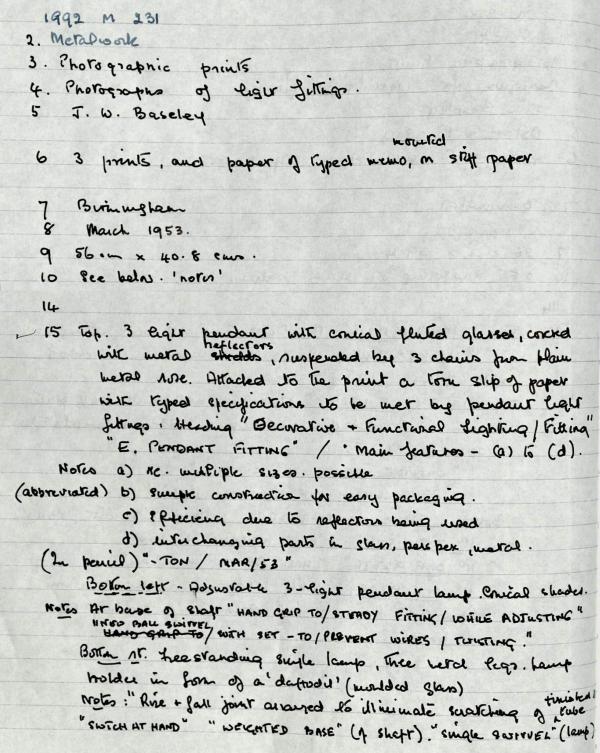 1992 M 231
2. Metalwork
3. Photographic prints
4. Photographs of light fittings.
5 J. W. Baseley
6 3 prints, and paper of typed memo, mounted on stiff paper
7 Birmingham
8 March 1953.
9 56 cm x 40.8 cms.
10 See below. 'notes'
14
15 Top. 3 light pendant with conical fluted glasses, covered
with metal reflectors, suspended by 3 chains from plain
metal rose. Attached to the print a torn slip of paper
with typed specifications to be met by pendant light
fittings. Heading "Decorative + Functional Lighting / Fitting"
"E. PENDANT FITTING" / 'Main features - (a) to (d).
Notes a) multiple sizes possible
(abbreviated) b) simple construction for easy packaging.
c) Efficiency due to reflectors being used
d) interchanging parts in glass, perspex, metal.
(In pencil) "-TON / MAR/53"
Bottom left - Adjustable 3-light pendant lamp. Conical shades.
Notes At base of shaft "HAND GRIP TO/STEADY FITTING/WHILE ADJUSTING"
BALL SWIVEL
HAND GRIP TO/ WITH SET - TO/PREVENT WIRES / TWISTING."
Bottom rt. Freestanding single lamp, three metal legs. Lamp
holder in form of a 'daffodil' (moulded glass)
Notes: "Rise + fall joint arranged to illiminate scratching of finished tube
"SWITCH AT HAND" "WEIGHTED BASE" (of shaft). "SINGLE SWIVVEL" (lamp)